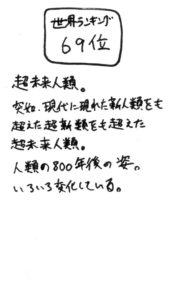 世界ランキング
69位
超未来人類。
突如、現代に現れた新人類をも
超えた超新類をも超えた
超未来人類。
人類の800年後の姿。
いろいろ変化している。